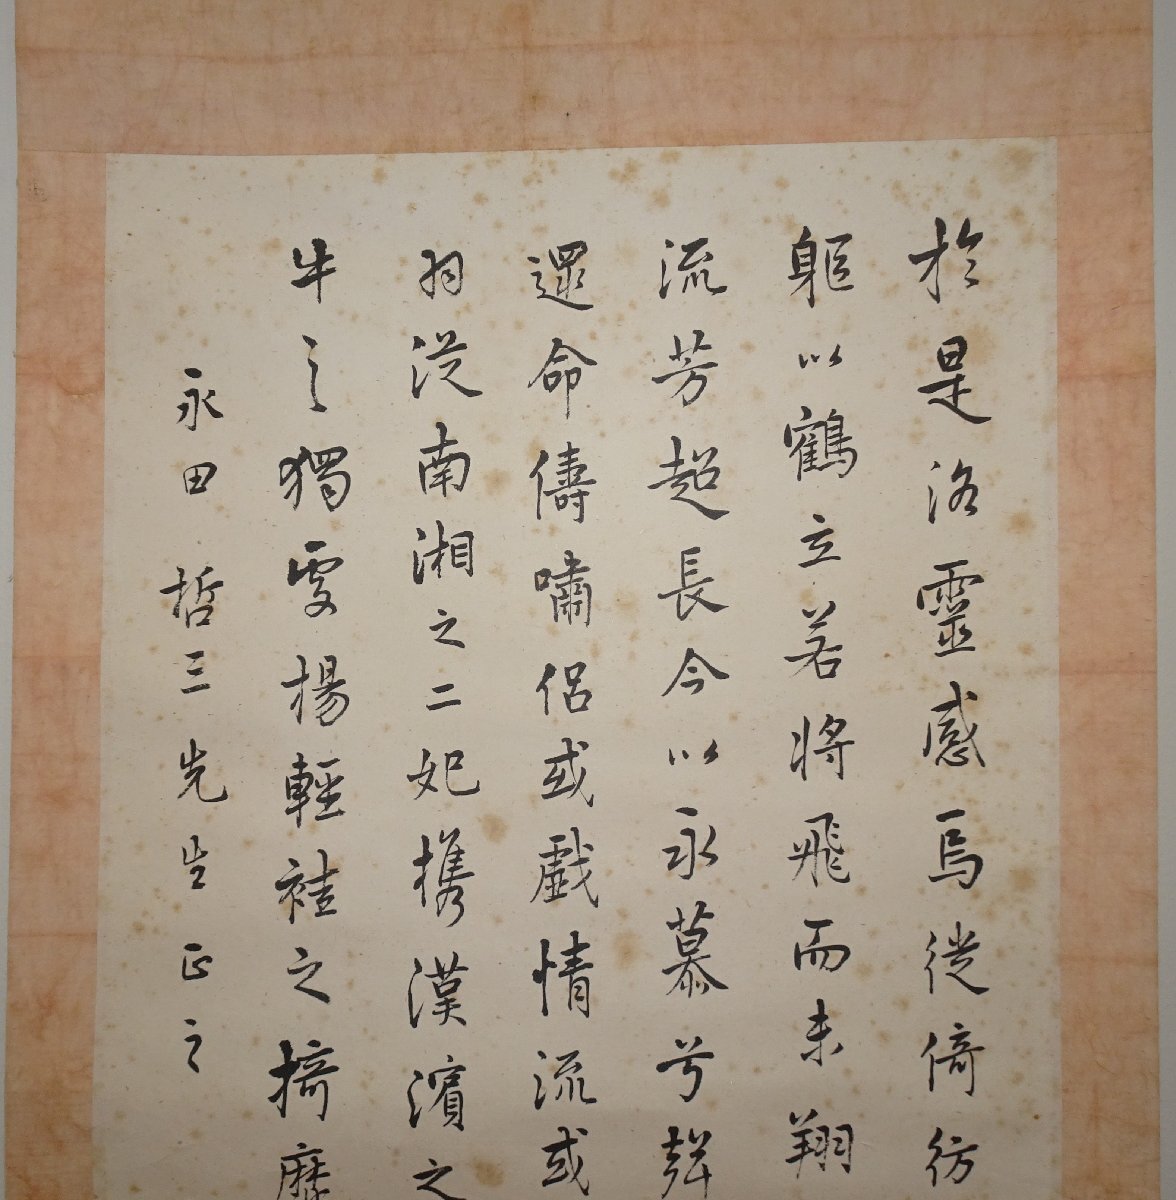 於是洛靈感焉徙倚彷
軀以鶴立若將飛而未翔
流芳超長吟以永慕兮聲
還命儔嘯侶或戲情流或
羽從南湘之二妃攜漢濱之
牛之獨處揚輕袿之掎靡
永田哲三先生正之